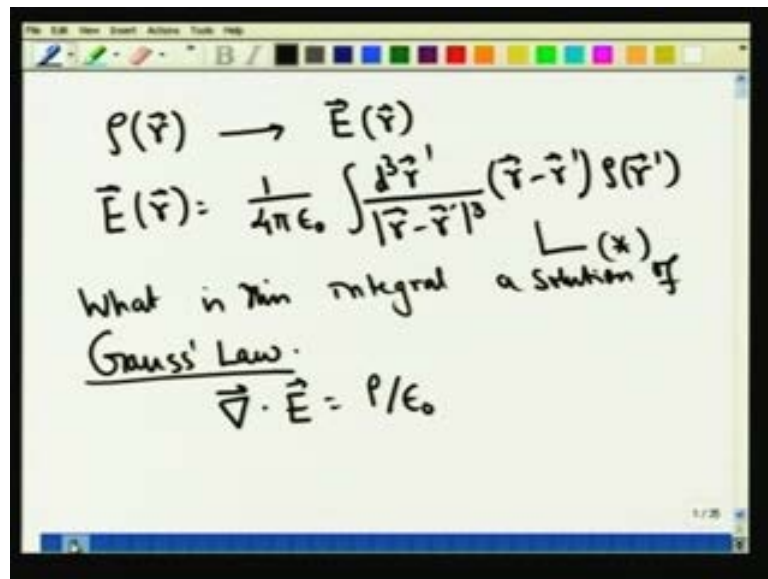 File Edit View Insert Actions Tools Help
B I
ρ(r⃗) → E⃗(r⃗)
E⃗(r⃗) = 1/4πϵ₀ ∫ d³r⃗'/|r⃗-r⃗'|³ (r⃗-r⃗') ρ(r⃗')
(*)
What is this integral a solution of
Gauss' Law.
∇⃗ · E⃗ = ρ/ϵ₀
1/25